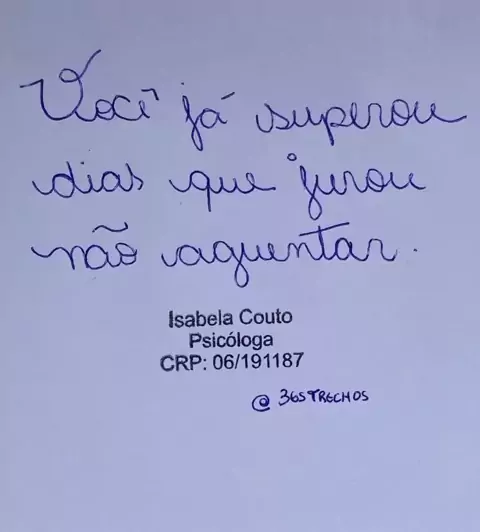 Você já superou
dias que jurou
não aguentar.
Isabela Couto
Psicóloga
CRP: 06/191187
@ 365TRECHOS